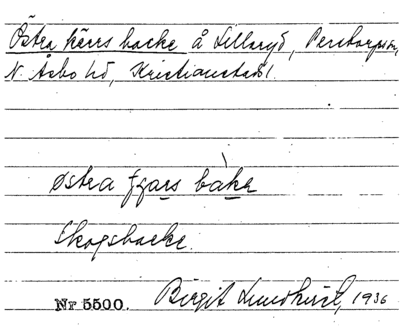 Östra kärrs backe å Lillaryd, Perstorps sn,
N. Åsbo hd, Kristianstads l.
østra ɟɟars bàkɛ
Skogsbacke.
Nr 5500. Birgit 1936